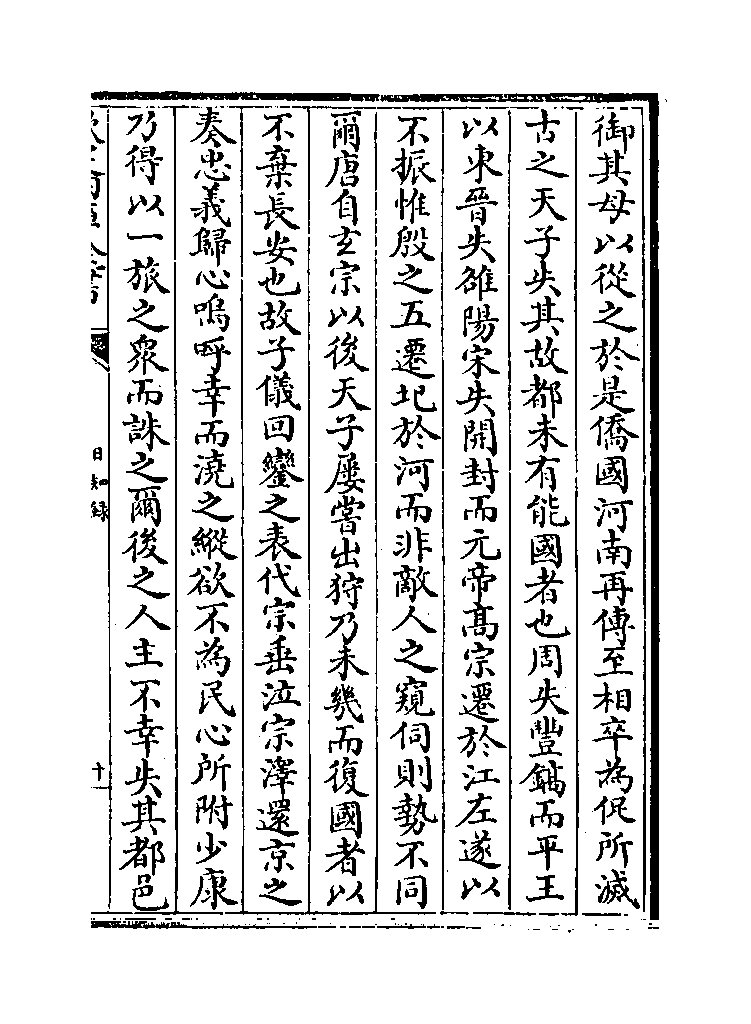 御其母以從之於是僑國河南再傳至相卒為伲所滅
古之天子失其故都未有能國者也周失豐鎬而平王
以東晉失雒陽宋失開封而元帝髙宗遷於江左遂以
不振惟殷之五遷圮於河而非敵人之窺伺則勢不同
爾唐自玄宗以後天子屡嘗出狩乃未幾而復國者以
不棄長安也故子儀回鑾之表代宗垂泣宗澤還京之
奏忠義歸心嗚呼幸而澆之縱欲不為民心所附少康
乃得以一旅之衆而誅之爾後之人主不幸失其都邑
日知録
十一